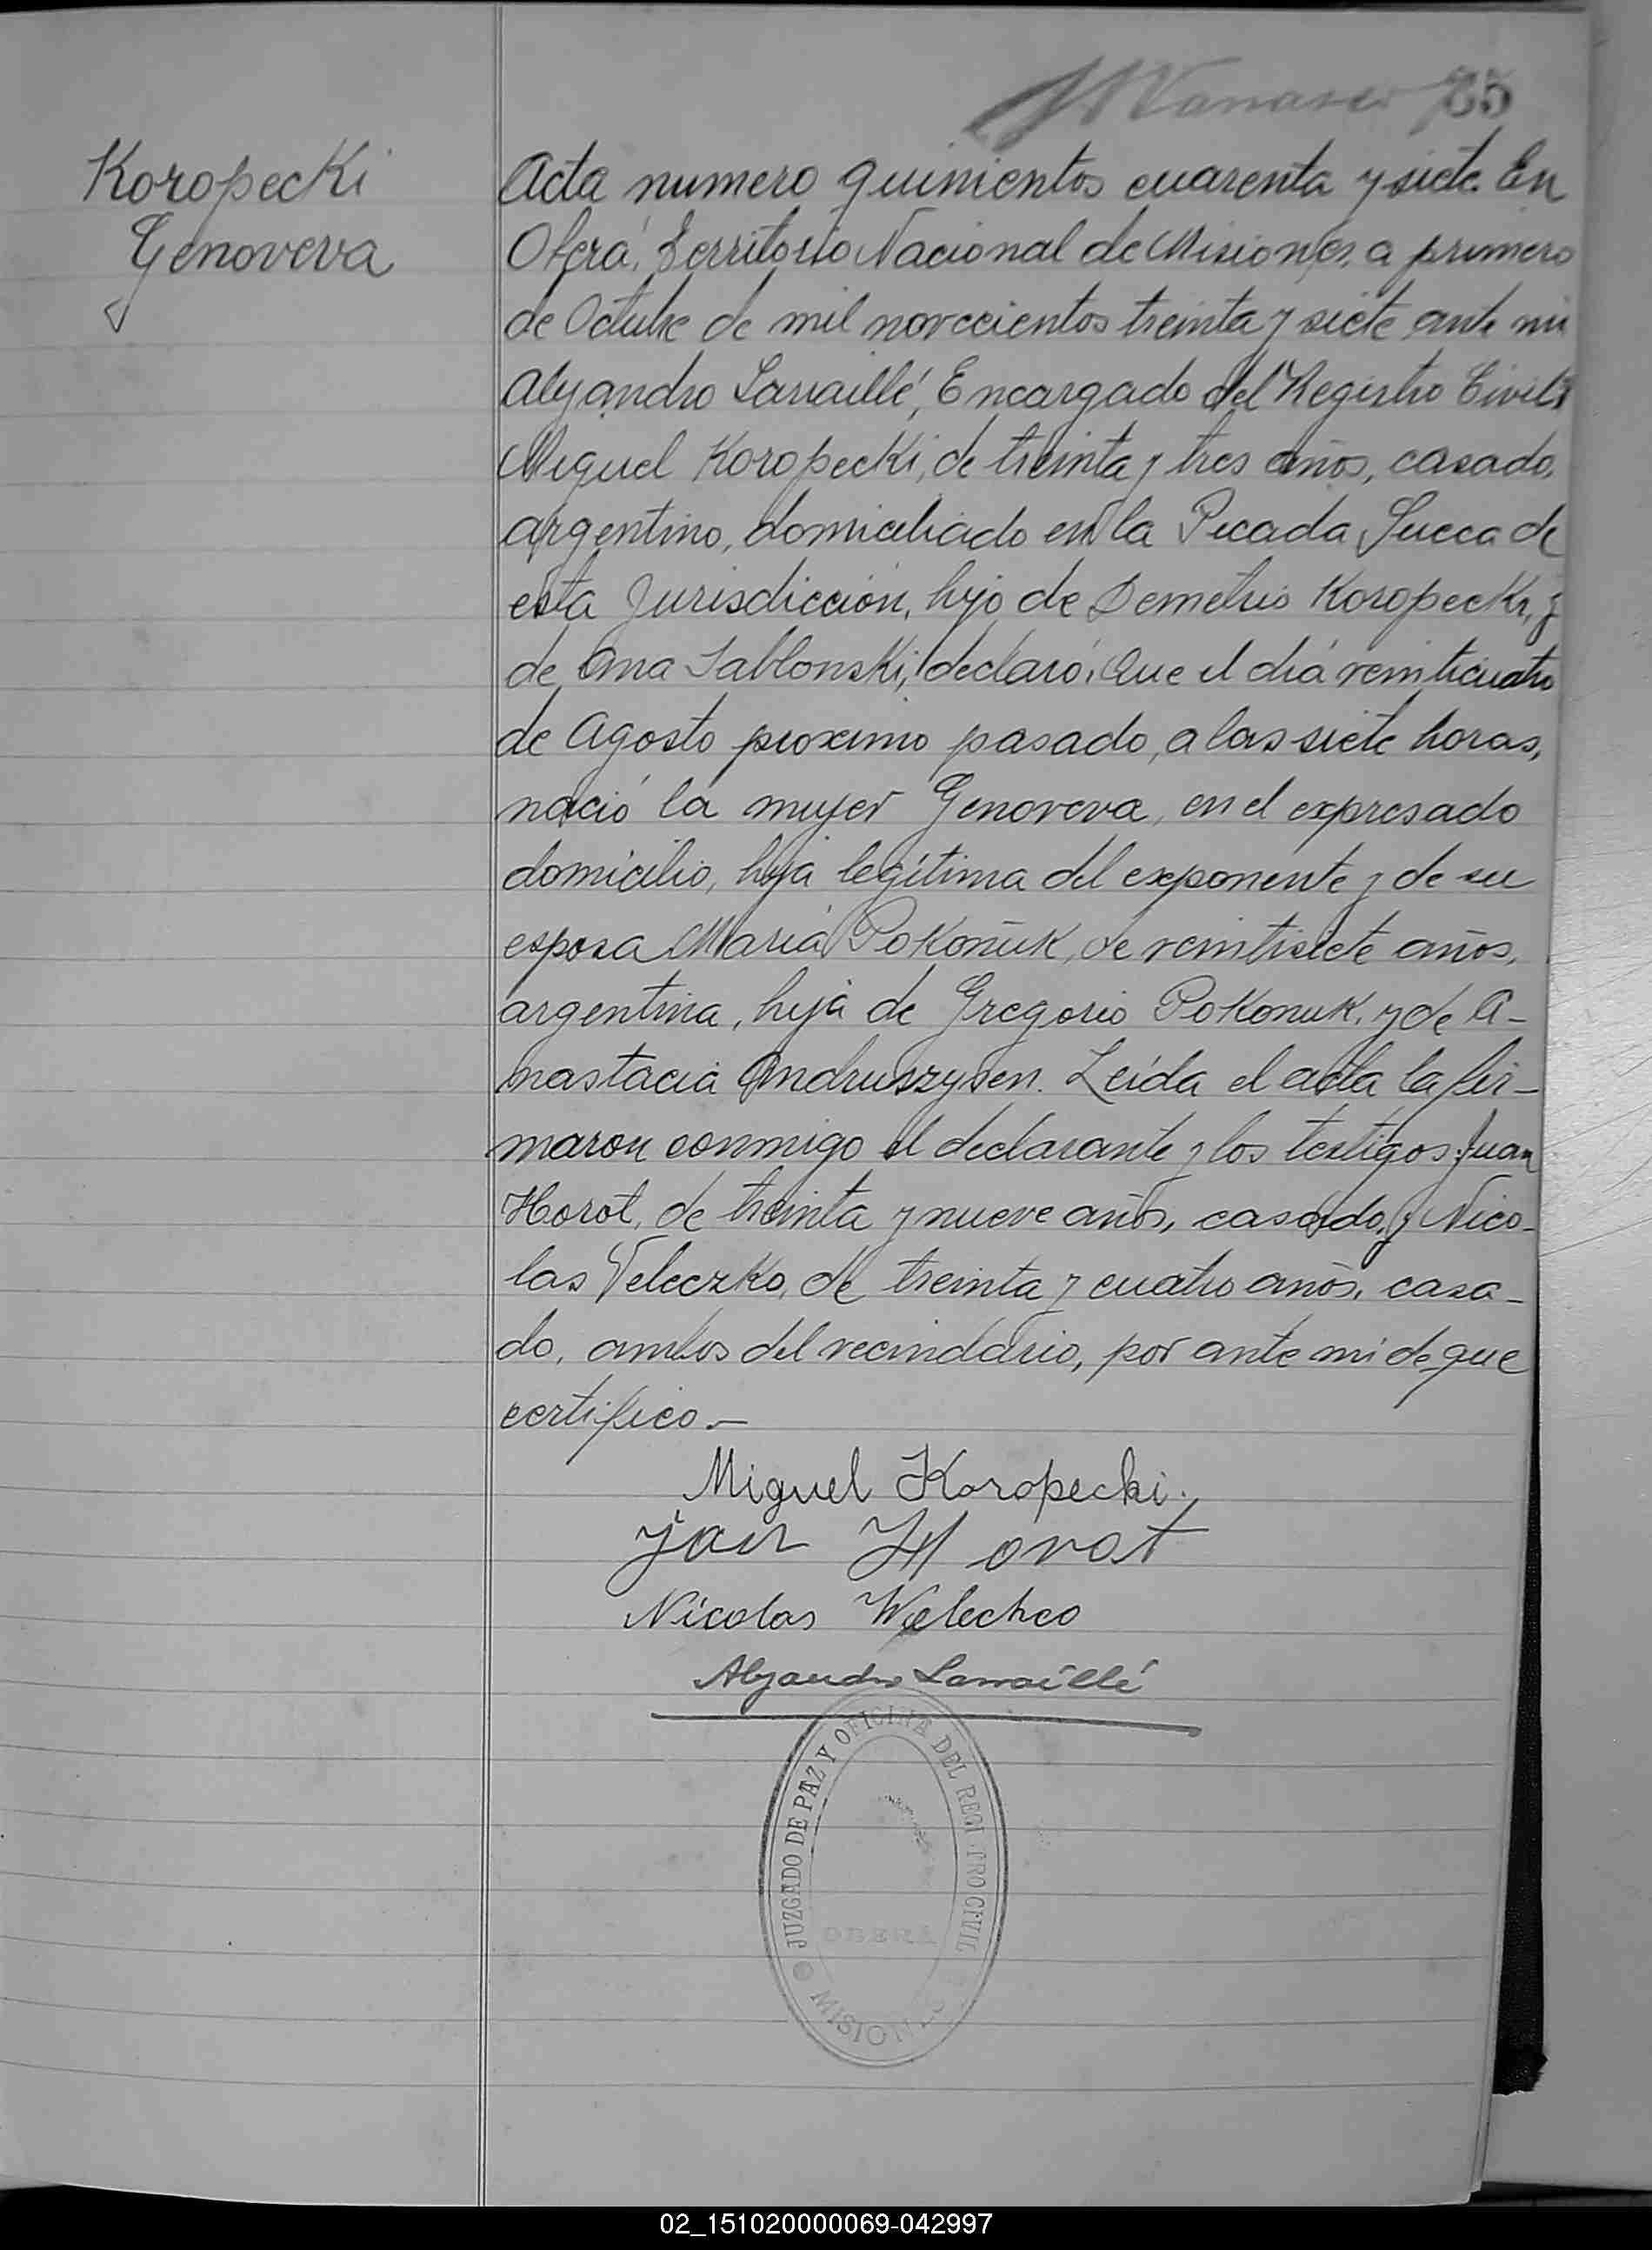 85
Koropecki
Genoveva
Acta numero quinientos cuarenta y siete. En
Oberá, Territorio Nacional de Misiones, a primero
de Octubre de mil novecientos treinta y siete ante mi
Alejandro Larraillé, Encargado del Registro Civil,
Miguel Koropecki, de treinta y tres años, casado,
argentino, domiciliado en la Picada Sueca de
esta Jurisdicción, hijo de Demetrio Koropecki, y
de Ana Jablonski, declaró: Que el día veinticuatro
de Agosto proximo pasado, a las siete horas,
nació la mujer Genoveva, en el expresado
domicilio, hija legítima del exponente y de su
esposa María Pokoñuk, de veintisiete años,
argentina, hija de Gregorio Pokonuk, y de A-
nastacia Andruszysen. Leída el acta la fir-
maron conmigo el declarante y los testigos Juan
Horot, de treinta y nueve años, casado, y Nico-
las Veleczko, de treinta y cuatro años, casa-
do, ambos del vecindario, por ante mí de que
certifico.-
Miguel Koropecki.
Jan Horot
Nicolas Welechco
Alejandro Larraillé
JUZGADO DE PAZ Y OFICINA DEL REGISTRO CIVIL
OBERÁ
MISIONES
02_151020000069-042997